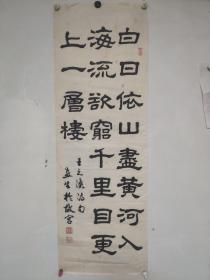 白日依山盡黃河入
海流欲窮千里目更
上一層樓
王之渙詩句
益生於故宮